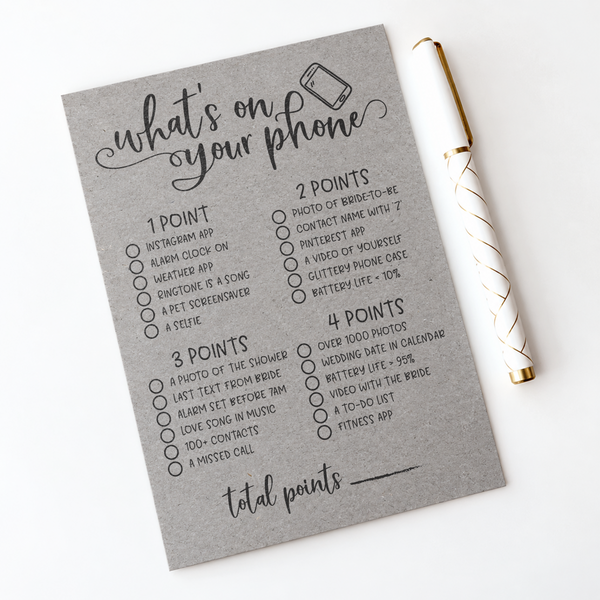 what's on
your phone
1 POINT
INSTAGRAM APP
ALARM CLOCK ON
WEATHER APP
RINGTONE IS A SONG
A PET SCREENSAVER
A SELFIE
2 POINTS
PHOTO OF BRIDE-TO-BE
CONTACT NAME WITH 'Z'
PINTEREST APP
A VIDEO OF YOURSELF
GLITTERY PHONE CASE
BATTERY LIFE < 10%
3 POINTS
A PHOTO OF THE SHOWER
LAST TEXT FROM BRIDE
ALARM SET BEFORE 7AM
LOVE SONG IN MUSIC
100+ CONTACTS
A MISSED CALL
4 POINTS
OVER 1000 PHOTOS
WEDDING DATE IN CALENDAR
BATTERY LIFE > 95%
VIDEO WITH THE BRIDE
A TO-DO LIST
FITNESS APP
total points